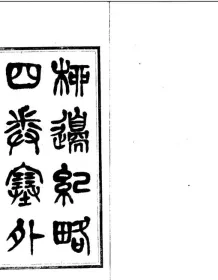 柳邊紀略
四卷塞外